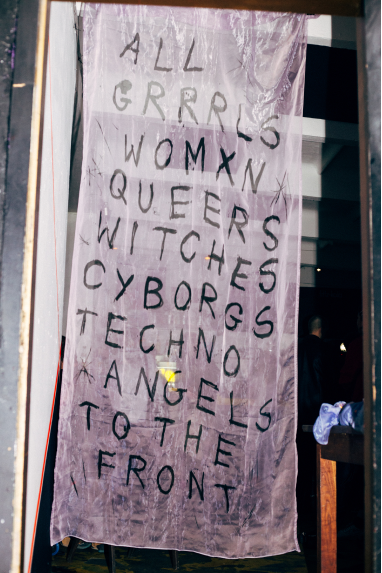 ALL
GRRRLS
WOMXN
QUEERS
WITCHES
CYBORGS
TECHNO
ANGELS
TO THE
FRONT